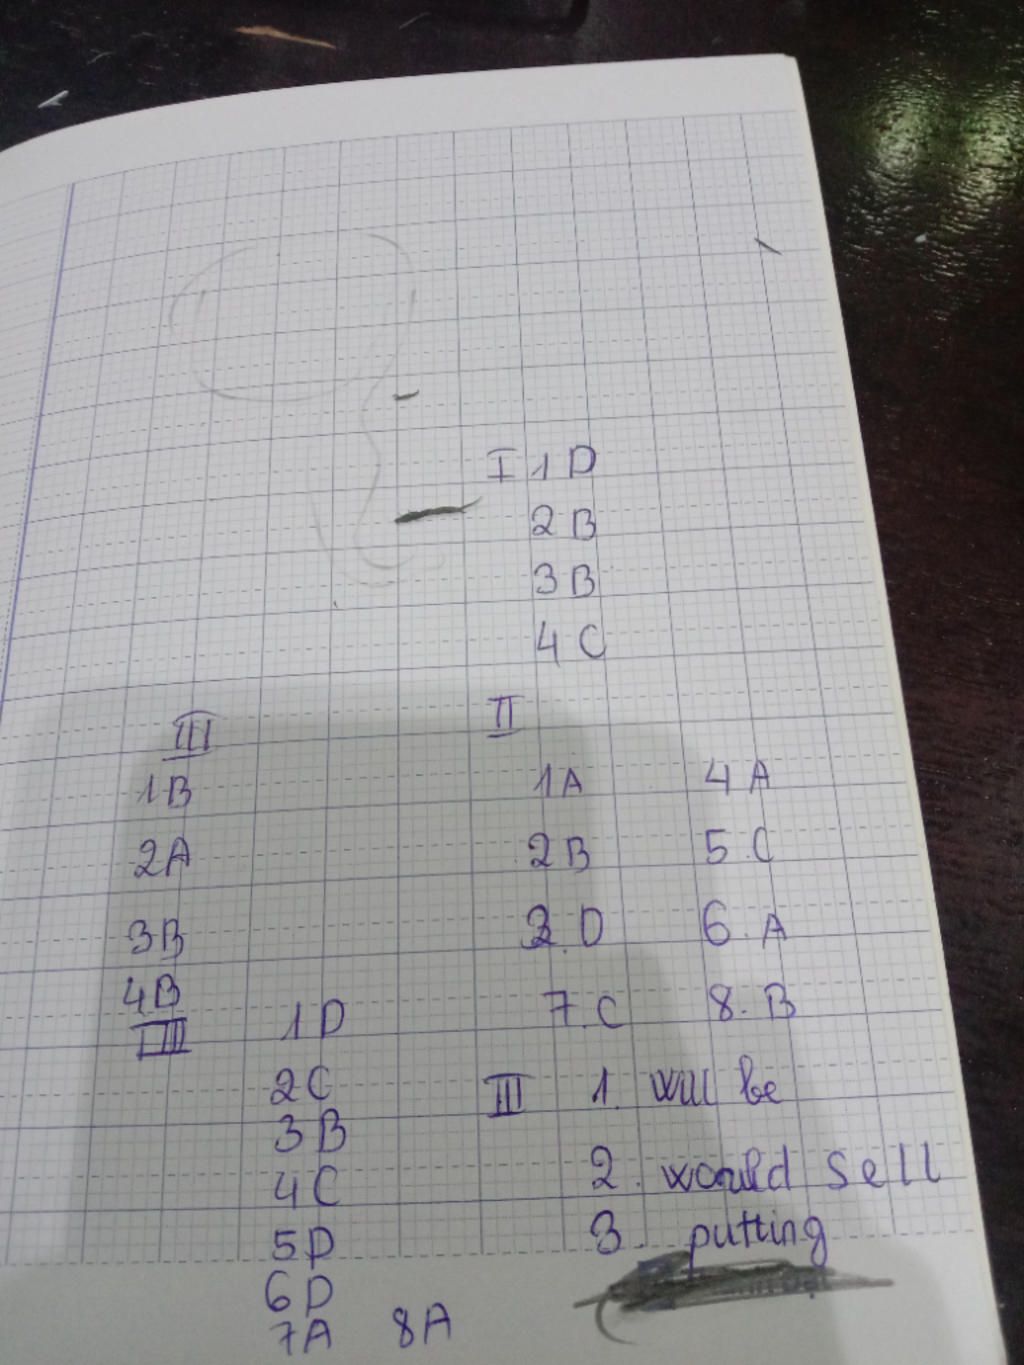 I 1 D
2 B
3 B
4 C
II
1 A 4 A
2 B 5. C
3. D 6. A
7. C 8. B
III 1. will be
2. would sell
3. putting
III
1 B
2 A
3 B
4 B
IIII
1 D
2 C
3 B
4 C
5 D
6 D
7 A 8 A